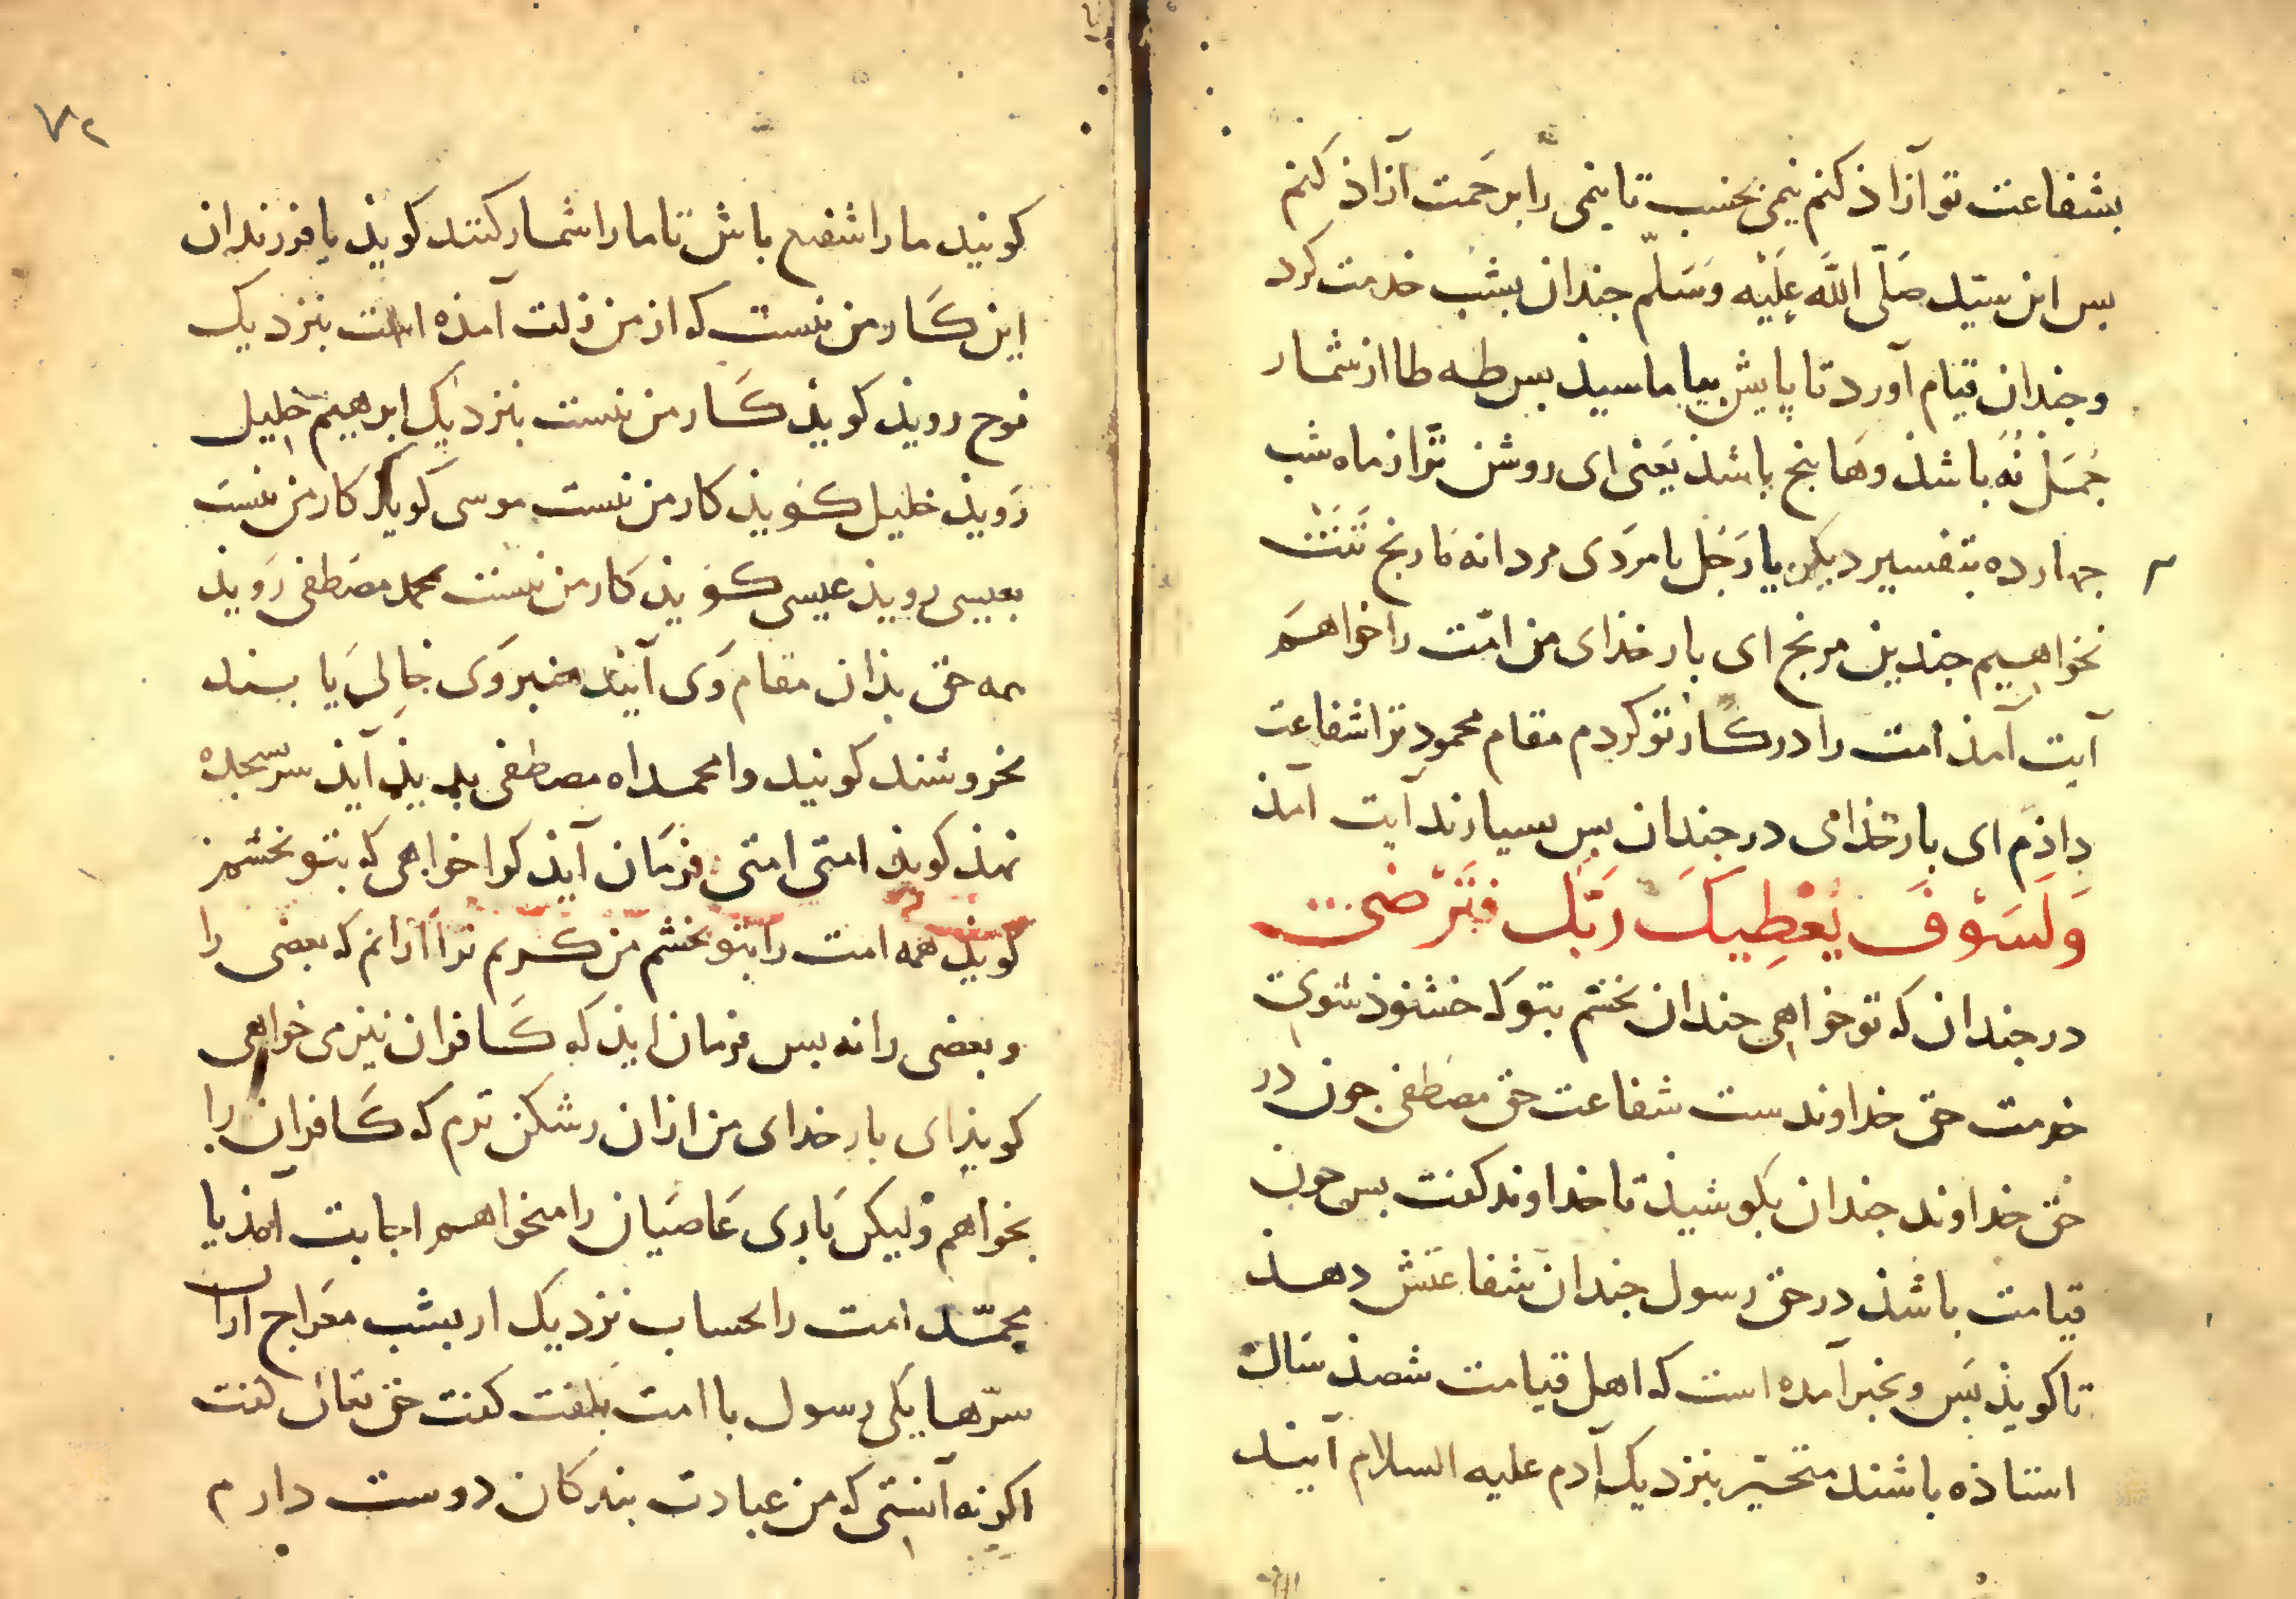 بشفاعت تو آزاذ كنم نیمی بخسب تا نیمی را برحمت آزاذ كنم
بس این سیّد صَلَّی اللَّه عَلَیْه وَسَلّم جندان بشب خدمت كرد
و جندان قیام آورد تا پایش بیاماسیذ بس طه طا از شمار
جُمَل نُه باشذ وهَا بنج باشذ یَعنی ای روشن تر از ماه شب
جهارده بتفسیر دیكر یا رَجُل یا مرَدی مردانه ما رنج تَنَت
نخواهیم جندین مرنج ای بار خذای من امّت را خواهَم
آیت آمذ امت را در كار تو كردم مقام محمود ترا شفاعت
داذم ای بار خذای در جندان بس بسیارند آیت آمذ
وَلَسَوْفَ یُعْطِیكَ رَبُّكَ فَتَرْضَی
در جندان كه تو خواهی جندان بخشم بتو كه خشنوذ شوی
خدمت حق خداوندست شفاعت حق مصَطفی جون در
حق خداوند جندان بكوشیذ تا خداوند كفت بس جون
قیامت باشذ در حق رسول جندان شفاعتش دهذ
تا كویذ بَس و بخبر آمده است كه اهل قیامت شصذ سَال
استاذه باشند متحیّر بنزدیك آدم علیه السلام آیند
٧٢
كونید ما را شفیع باش تا ما را شمار كنند كویذ یا فرزندان
این كَار من نیست كه از من زلت آمذه است بنزدیك
نوح رویذ كویذ كَار من نیست بنزدیك ابرهیم خلیل
رَویذ خلیل كویذ كار من نیست موسی كوید كار من نیست
بعیسی رویذ عیسی كویذ كار من نیست محمد مصَطفی رَویذ
همه خق بذان مقام وَی آیند منبر وَی خالِی یا بند
بخروشند كونید وا محمداه مصطفی بدیذ آیذ سر بسجده
نهذ كویذ امتی امتی فرمَان آیذ كرا خواهی كه بتو بخشم
كویذ همه امت را بتو بخشم من كریم تر از انم كه بعضی را
و بعضی را نه بس فرمان ایذ كه كَافران نیز می خواهی
كویذ ای بار خدای من ازان رشكن ترم كه كَافران را
بخواهم ولیكن بَاری عَاصیَان را میخواهم اجابت آمذ یا
محمّد امت را بحساب نزدیك ار بشب معَراج ازان
سرّها یكی رسول با امت بكفت كفت حق تعالی كفت
اكر نه آنستی كه من عبادت بندكان دوست دارم